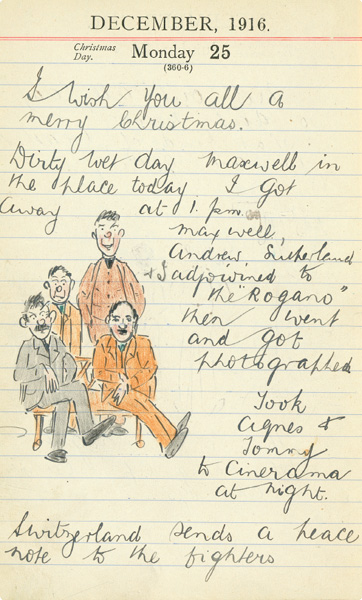 DECEMBER, 1916.
Christmas Day. Monday 25
(360-6)
I wish you all a
merry Christmas.
Dirty wet day maxwell in
the place today I got
away at 1. p.m.
maxwell,
Andrew, Sutherland
& I adjoined to
the "Rogano"
then went
and got
photographed
Took
Agnes &
Tommy
to Cinerama
at night.
Switzerland sends a peace
note to the fighters